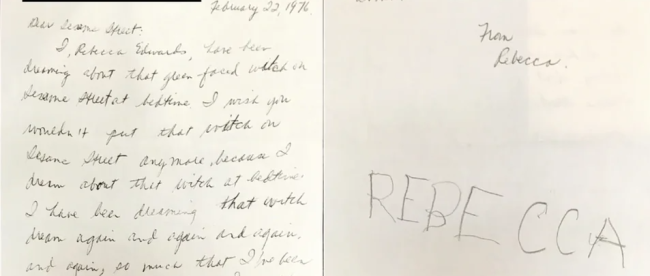 February 22, 1976.
Dear Sesame Street:
I, Rebecca Edwards, have been
dreaming about that green faced witch on
Sesame Street at bedtime. I wish you
wouldn't put that witch on
Sesame Street anymore, because I
dream about that witch at bedtime.
I have been dreaming that witch
dream again and again and again,
and again, so much that I've been
From
Rebecca.
REBECCA